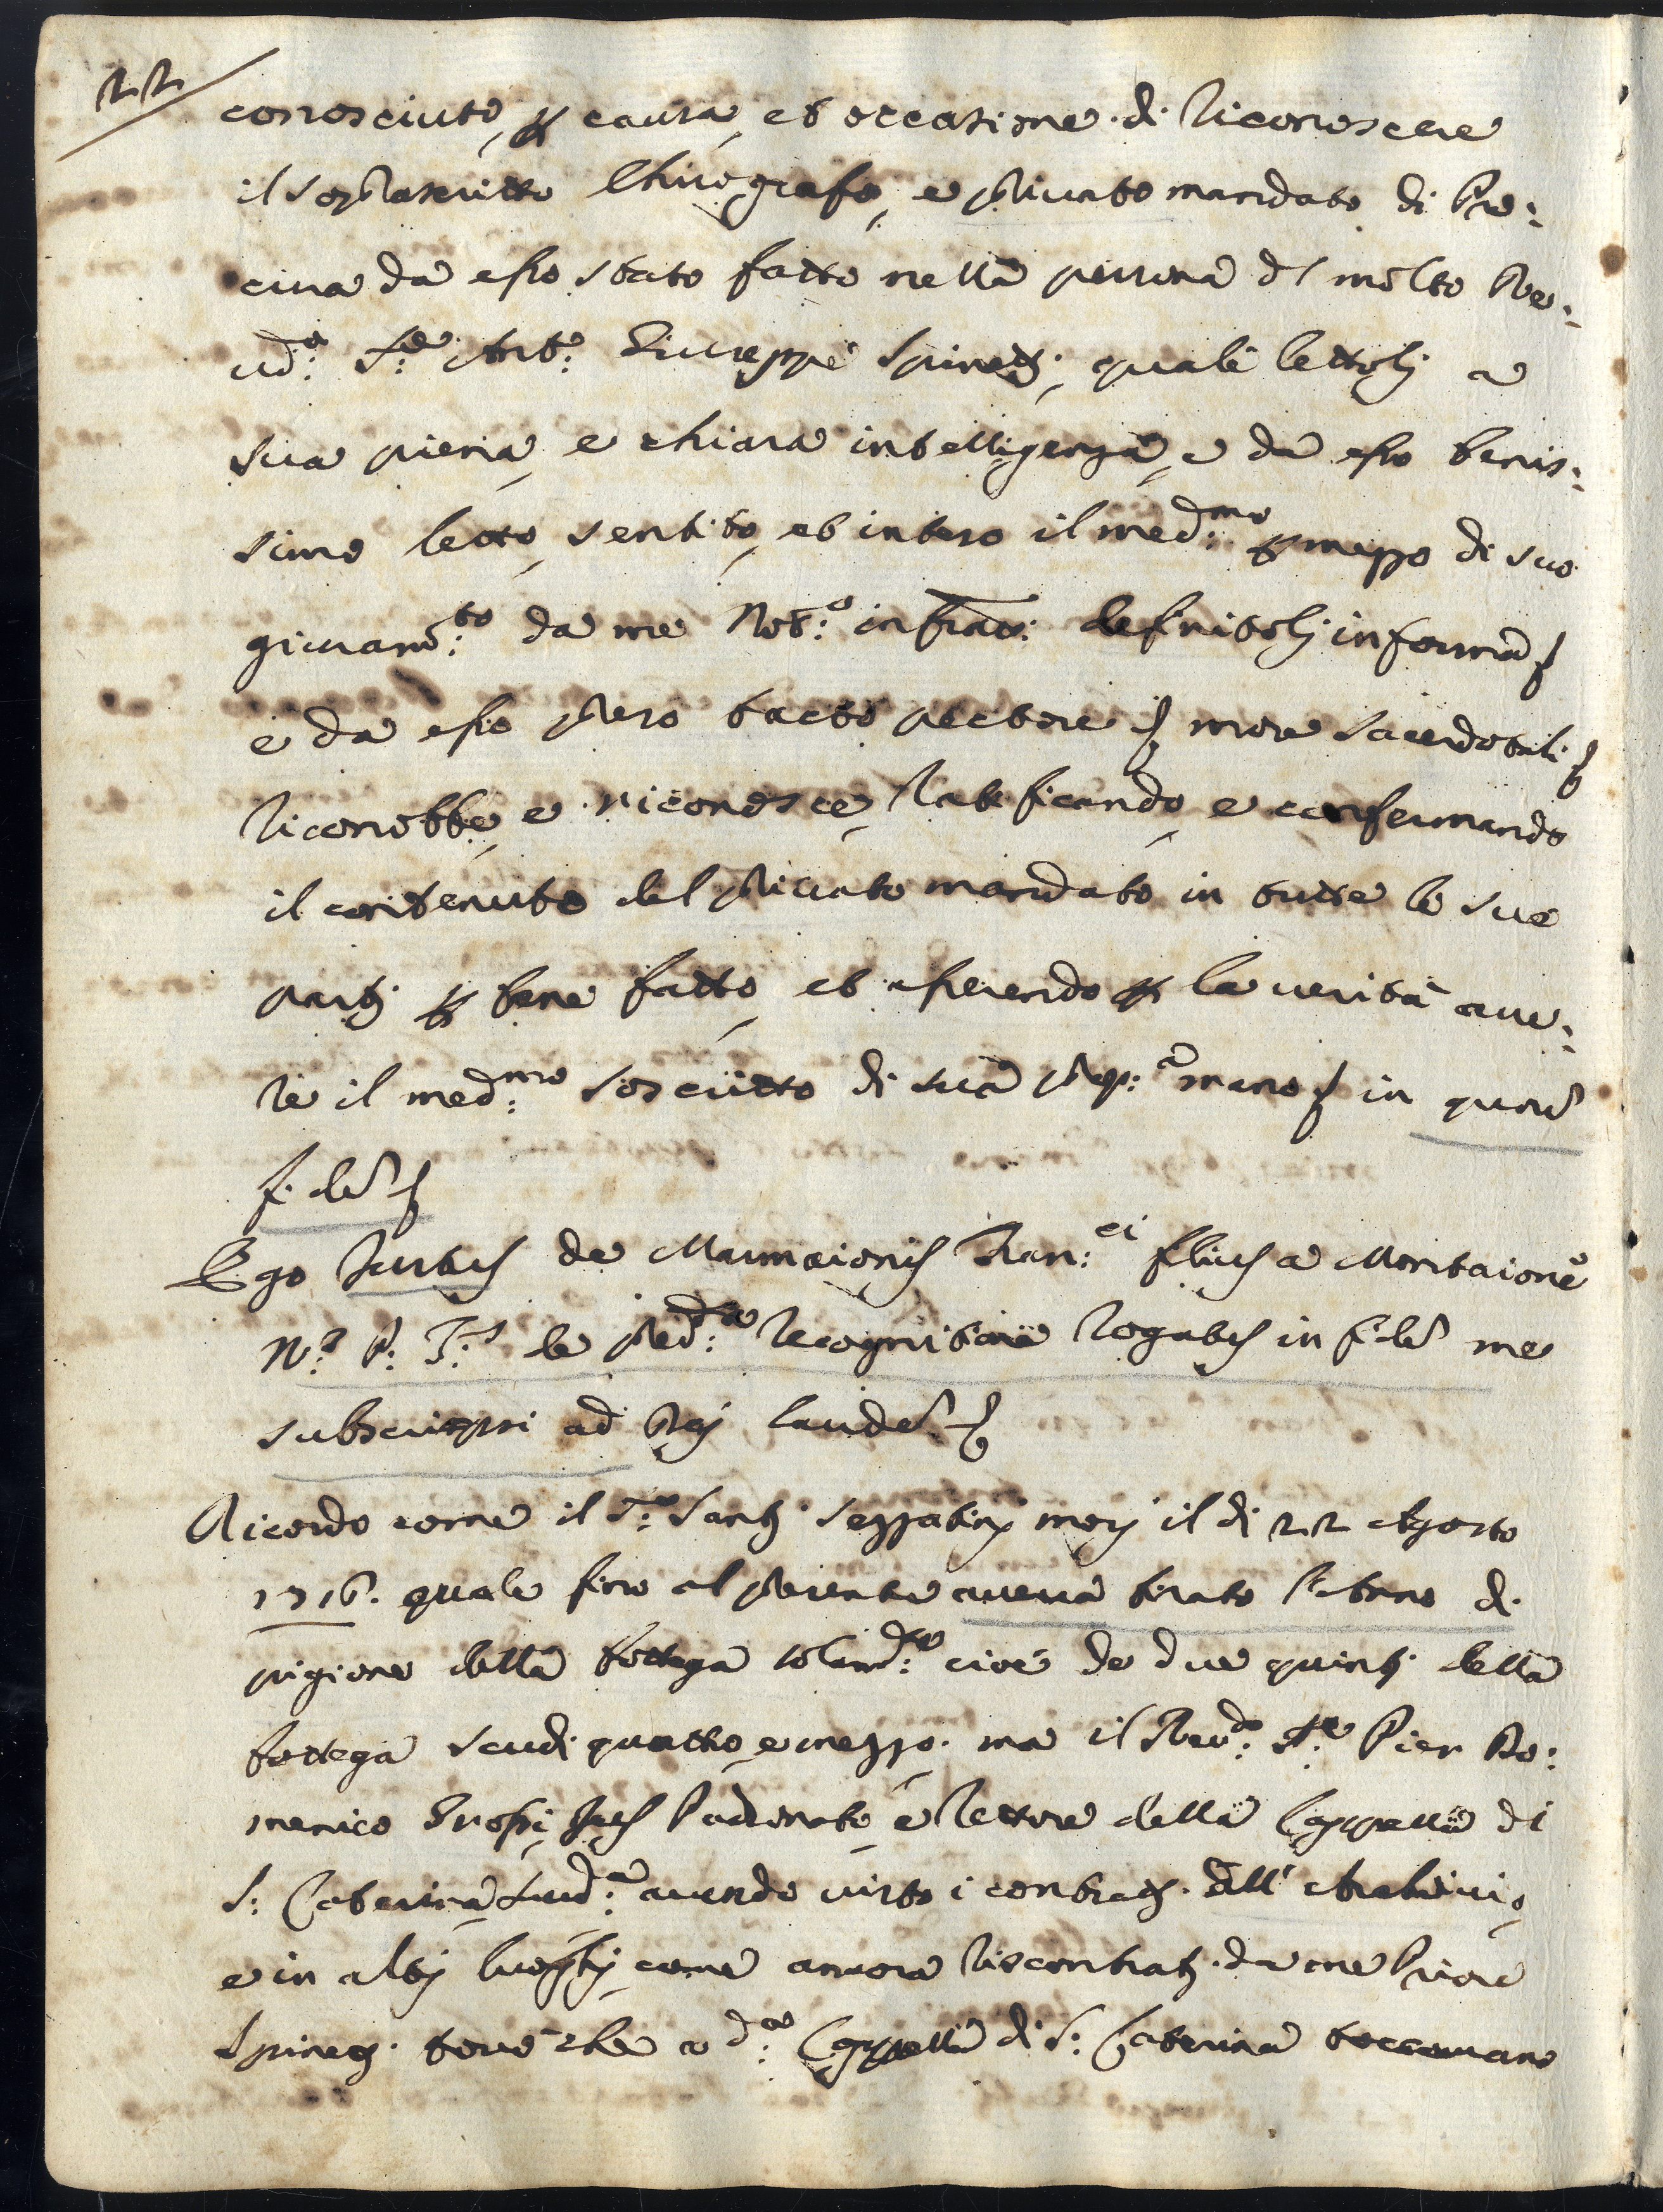 22
conosciuto, p causa, et occasione di riconoscere
il soprascritto Chirografo, e privato mandato di Pro:
cura da esso stato fatto nella persona d l molto Rev:
do: Sre: Anto: Giuseppe Spinetj, quale lettolj a
sua piena, e chiara intelligenza, e da esso benis:
simo letto, sentito, et inteso il med:mo p mezzo di suo
giuram:to da me Not:o infratto: defritolj in forma
e da esso preso tacto pectore more sacerdotali
riconobbe, e riconosce, ratificando, e confermando
il contenuto del privato mandato in tutte le sue
partj p bene fatto, et asserendo p la verità ave:
re il med:mo soscritto di sua prop:a mano in quor
fidem
Ego de Marmaionis Fran:ci filius a Montaione
N:s P: F:s de pred:a recognitione rogatus in fidem me
subscripsi ad laudem
Ricordo come il S:r Santj Sezzatinj morì il dì 22 Agosto
1716. quale fino al presente aveva tirato l'
pigione della bottega cioè de due quintj della
bottega scudi quattro, e mezzo. ma il Rev:do S:re Pier Do:
menico Padronato, e rettore della Cappella di
S: Caterina avendo visto i contrattj. all' Archivio,
e in altrj luoghj, come ancora riscontratj da me Priore
Spinetj. trovò che a d:a Cappella di S: Caterina toccavano